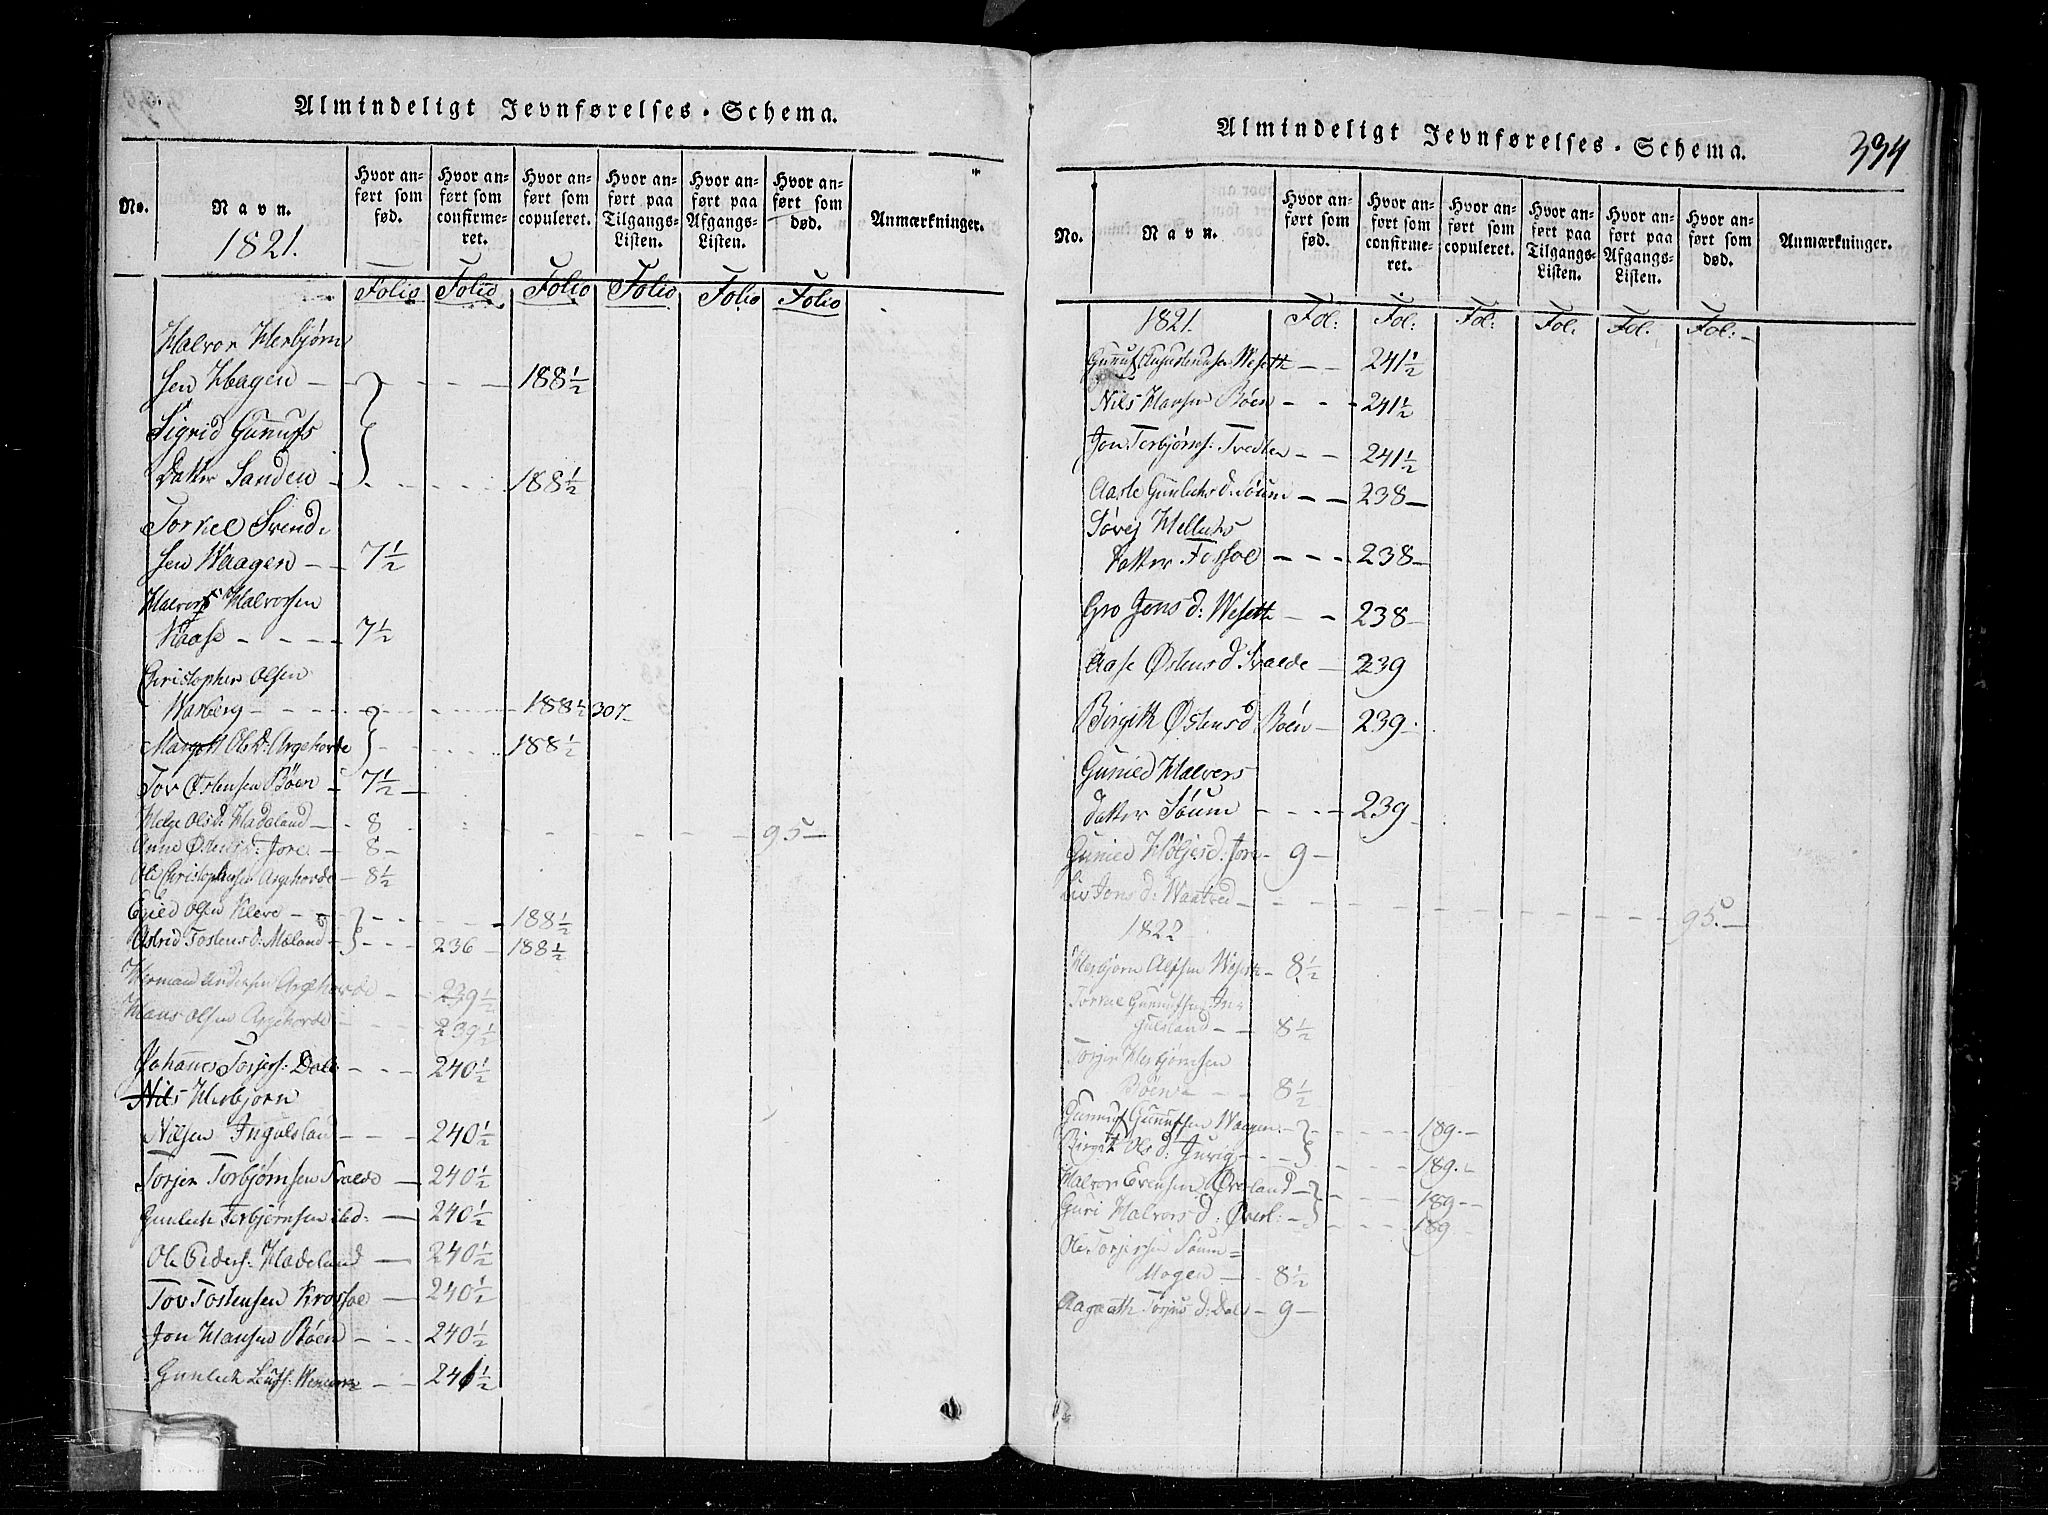 Almindeligt Jevnførelses-Schema.
No. Navn. 1821. Hvor anført som fød. Hvor anført som confirmeret. Hvor anført som copuleret. Hvor anført paa Tilgangs-Listen. Hvor anført paa Afgangs-Listen. Hvor anført som død. Anmærkninger.
Folio Folio Folio Folio Folio Folio
Halvor Herbjørn
sen Hagen 188½
Sigrid Gunufs
Datter Sanden 188½
Torkel Svend
sen Waagen 7½
Halvor Halvorsen
Kaase 7½
Christopher Olsen
Warberg 188½ 307
Margit Ols D: Argehovde 188½
Tov Østensen Bøen 7½
Helge Ols D: Hadeland 8 95
Anne Østens D: Jore 8
Ole Christophersen Argehovde 8½
Egild Olsen Kleve 188½
Astrid Tostens D: Mæland 236 188½
Herman Andersen Argehovde 239½
Hans Olsen Argehovde 239½
Johanes Torjers: Dale 240½
Nils Herbjorn
Nilsen Ingulsland 240½
Torjer Torbjørnsen Svalde 240½
Gunleik Terbjørnsen ibd: 240½
Ole Peders: Hadeland 240½
Tov Tostensen Krossoe 240½
Jon Hansen Bøen 240½
Gunleik Leifs: 241½
Almindeligt Jevnførelses-Schema. 334
No. Navn. Hvor anført som fød. Hvor anført som confirmeret. Hvor anført som copuleret. Hvor anført paa Tilgangs-Listen. Hvor anført paa Afgangs-Listen. Hvor anført som død. Anmærkninger.
1821. Fol: Fol: Fol: Fol: Fol: Fol:
Gunuf Wesett 241½
Nils Hansen Bøen 241½
Jon Terbjørns: Tvedten 241½
Aasle Gunleiks d: Søum 238
Søvej Helleiks
Datter Fossoe 238
Gro Jons d: Wesett 238
Aase Østens d Svalde 239
Birgith Østens d Bøen 239
Gunild Halvors
datter Søum 239
Gunild Høljes d: Jore 9
Liv Jons d: Waatved 95
1822
Herbjorn Alfsen Wesett 8½
Torkel Gunufsen In
gulsland 8½
Torjer Herbjørnsen
Bøen 8½
Gunnuf Gunufsen Waagen 189
Birgit Ols d: Jurig 189
Halvor Evensen Øverland 189
Guri Halvors d: Øverl: 189
Ole Torjersen Søum=
Mogen 8½
Aagaath Torjus d: Dale 9